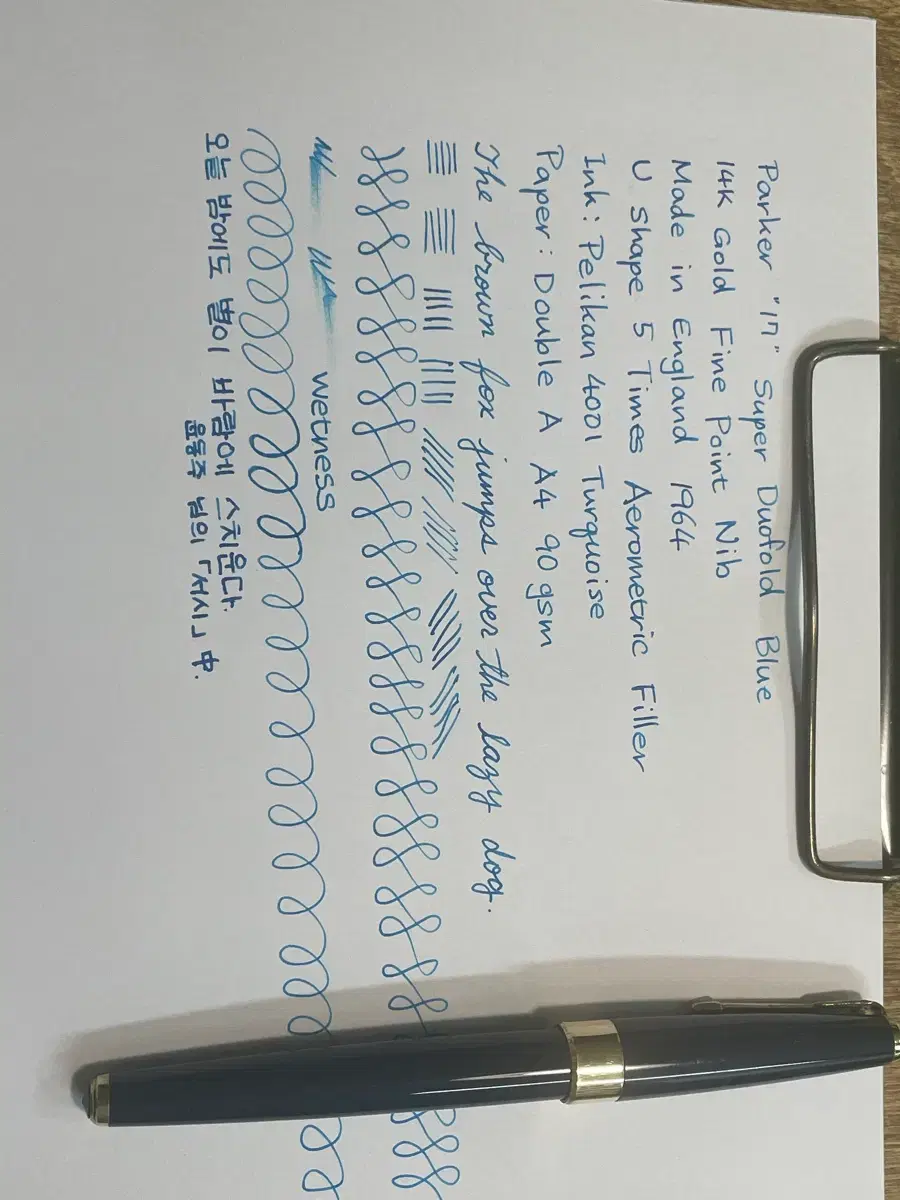 Parker "17" Super Duofold Blue
14K Gold Fine Point Nib
Made in England 1964
U Shape 5 Times Aerometric Filler
Ink: Pelikan 4001 Turquoise
Paper: Double A A4 90gsm
The brown fox jumps over the lazy dog.
wetness
오늘 밤에도 별이 바람에 스치운다.
윤동주 님의 「서시」 中.